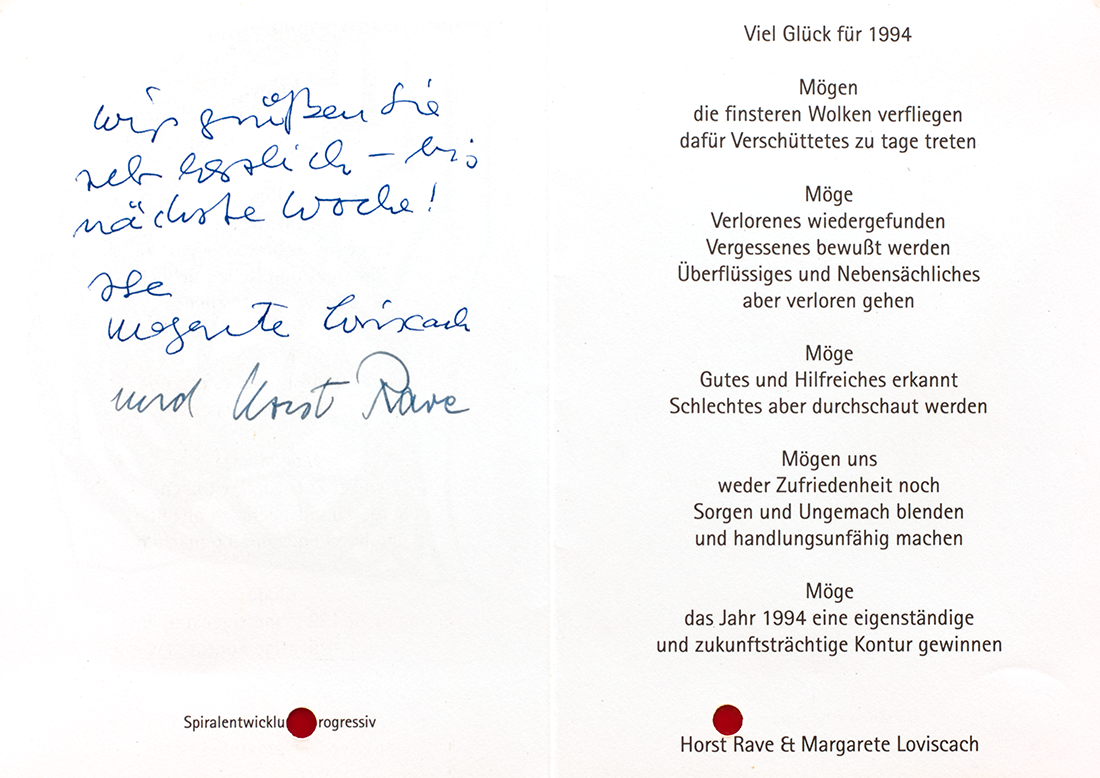 wir grüßen Sie
sehr herzlich – bis
nächste Woche!
Ihre
Margarete Loviscach
und Horst Rave
Spiralentwicklu rogressiv
Viel Glück für 1994
Mögen
die finsteren Wolken verfliegen
dafür Verschüttetes zu tage treten
Möge
Verlorenes wiedergefunden
Vergessenes bewußt werden
Überflüssiges und Nebensächliches
aber verloren gehen
Möge
Gutes und Hilfreiches erkannt
Schlechtes aber durchschaut werden
Mögen uns
weder Zufriedenheit noch
Sorgen und Ungemach blenden
und handlungsunfähig machen
Möge
das Jahr 1994 eine eigenständige
und zukunftsträchtige Kontur gewinnen
Horst Rave & Margarete Loviscach